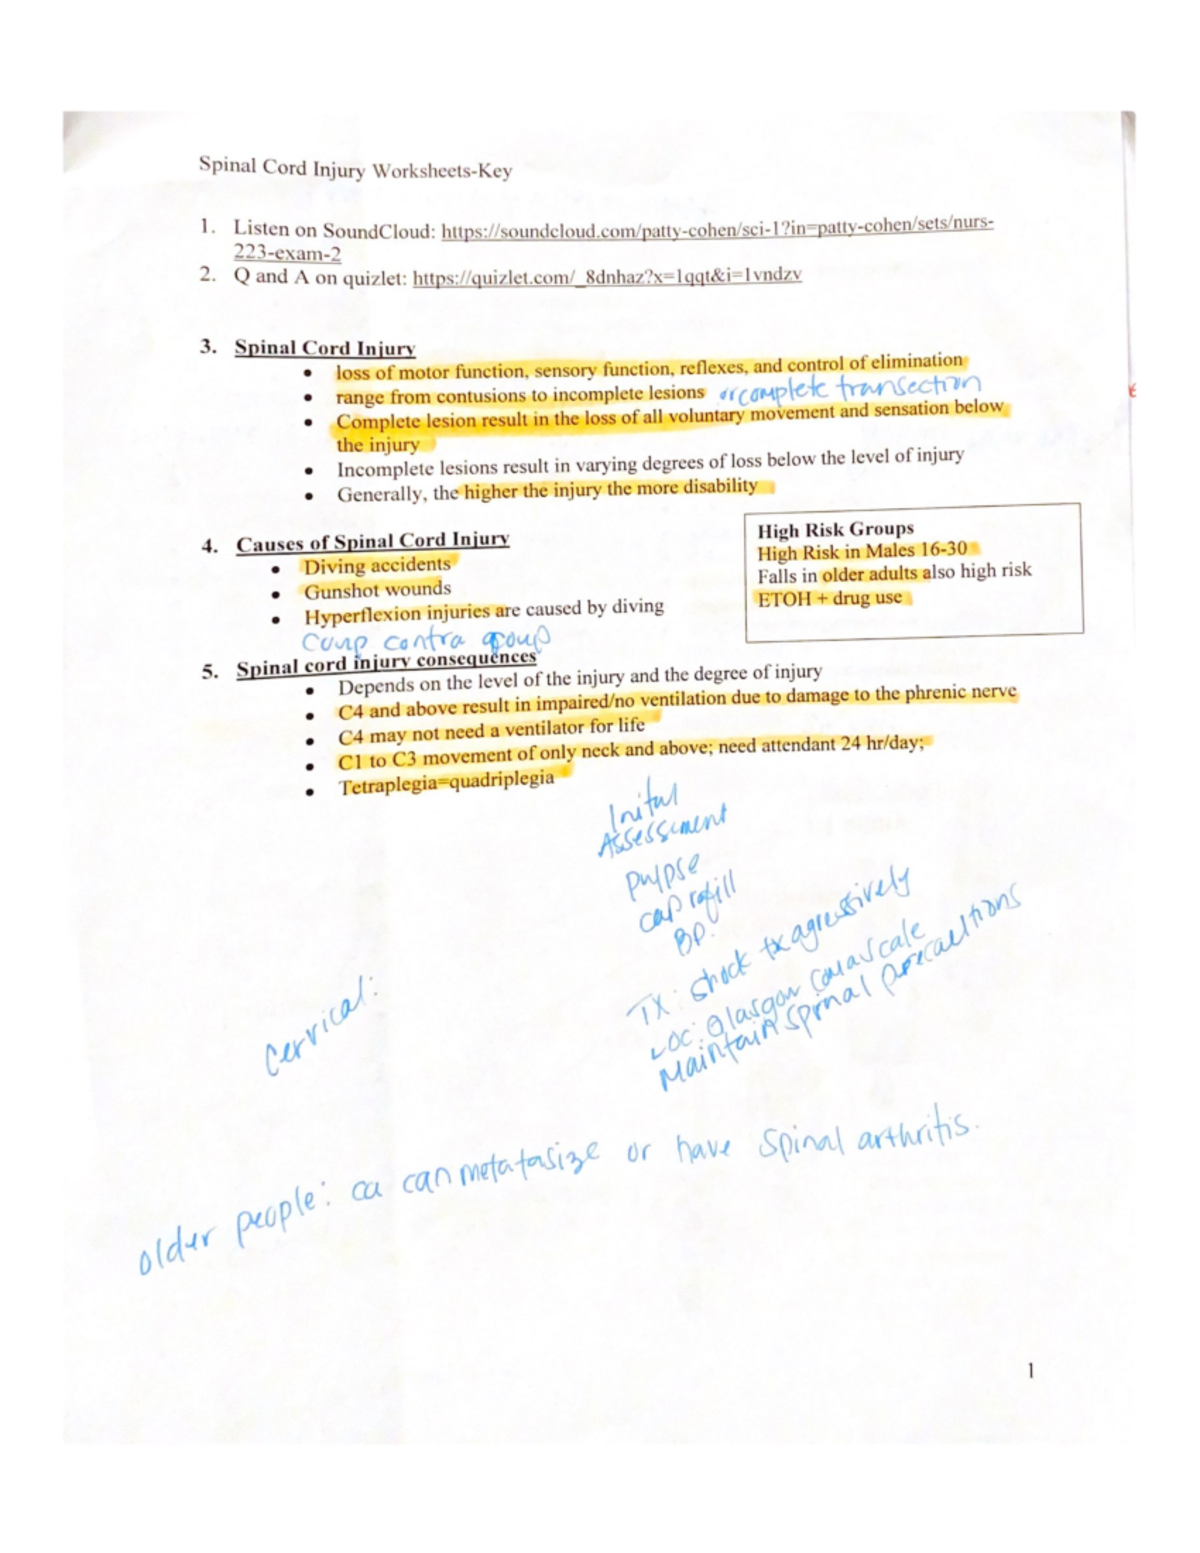 Spinal Cord Injury Worksheets-Key
1. Listen on SoundCloud: https://soundcloud.com/patty-cohen/sci-1?in=patty-cohen/sets/nurs-
223-exam-2
2. Q and A on quizlet: https://quizlet.com/_8dnhaz?x=1qqt&i=1vndzv
3. Spinal Cord Injury
• loss of motor function, sensory function, reflexes, and control of elimination
• range from contusions to incomplete lesions or complete transection
• Complete lesion result in the loss of all voluntary movement and sensation below
the injury
• Incomplete lesions result in varying degrees of loss below the level of injury
• Generally, the higher the injury the more disability
4. Causes of Spinal Cord Injury
• Diving accidents
• Gunshot wounds
• Hyperflexion injuries are caused by diving
contra group
High Risk Groups
High Risk in Males 16-30
Falls in older adults also high risk
ETOH + drug use
5. Spinal cord injury consequences
• Depends on the level of the injury and the degree of injury
• C4 and above result in impaired/no ventilation due to damage to the phrenic nerve
• C4 may not need a ventilator for life
• C1 to C3 movement of only neck and above; need attendant 24 hr/day;
• Tetraplegia=quadriplegia
Inital
Assessment
pulpse
cap refill
BP.
TX: shock tx agressively
LOC: Glasgow coma scale
Maintain spinal precautions
cervical:
older people: ca can metatasize or have spinal arthritis.
1